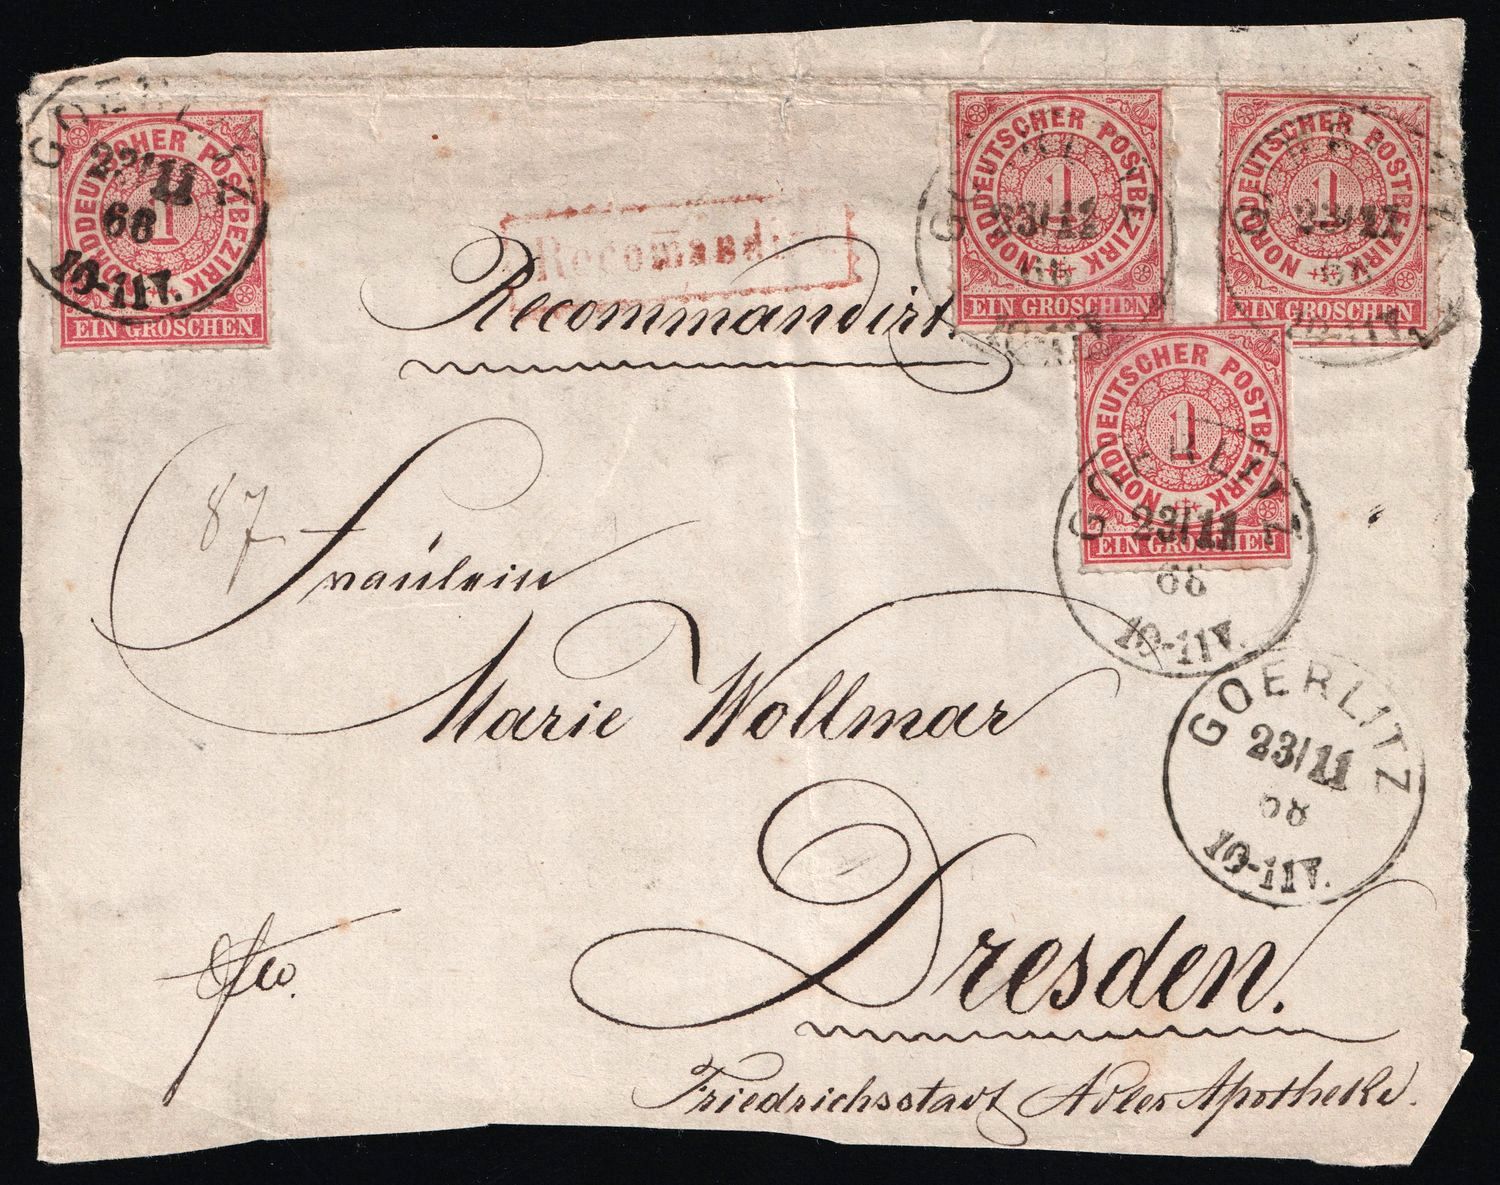 GOERLITZ
23/11
68
10-11V.
NORDDEUTSCHER POSTBEZIRK
1
EIN GROSCHEN
NORDDEUTSCHER POSTBEZIRK
1
EIN GROSCHEN
GOERLITZ
23/11
68
NORDDEUTSCHER POSTBEZIRK
1
EIN GROSCHEN
GOERLITZ
23/11
10-11V.
Recomandirt
Recommandirt
NORDDEUTSCHER POSTBEZIRK
1
EIN GROSCHEN
GOERLITZ
23/11
68
10-11V.
87
Fräulein
Marie Wollmar
GOERLITZ
23/11
68
10-11V.
Dresden.
fco.
Friedrichsstadt Adler Apotheke.